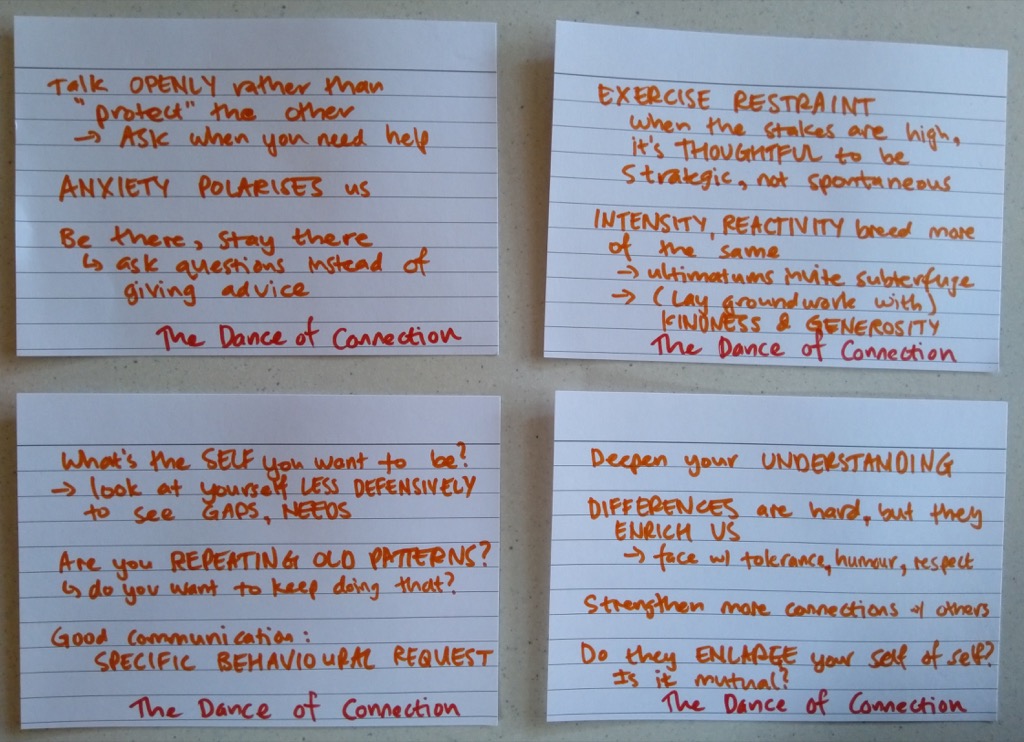 Talk OPENLY rather than
"protect" the other
→ ASK when you need help
ANXIETY POLARISES us
Be there, stay there
↳ ask questions instead of
giving advice
The Dance of Connection
EXERCISE RESTRAINT
when the stakes are high,
it's THOUGHTFUL to be
Strategic, not spontaneous
INTENSITY, REACTIVITY breed more
of the same
→ ultimatums invite subterfuge
→ (Lay groundwork with)
KINDNESS & GENEROSITY
The Dance of Connection
What's the SELF you want to be?
→ look at yourself LESS DEFENSIVELY
to see GAPS, NEEDS
Are you REPEATING OLD PATTERNS?
↳ do you want to keep doing that?
Good communication:
SPECIFIC BEHAVIOURAL REQUEST
The Dance of Connection
Deepen your UNDERSTANDING
DIFFERENCES are hard, but they
ENRICH US
→ face w/ tolerance, humour, respect
Strengthen more connections w/ others
Do they ENLARGE your self of self?
Is it mutual?
The Dance of Connection